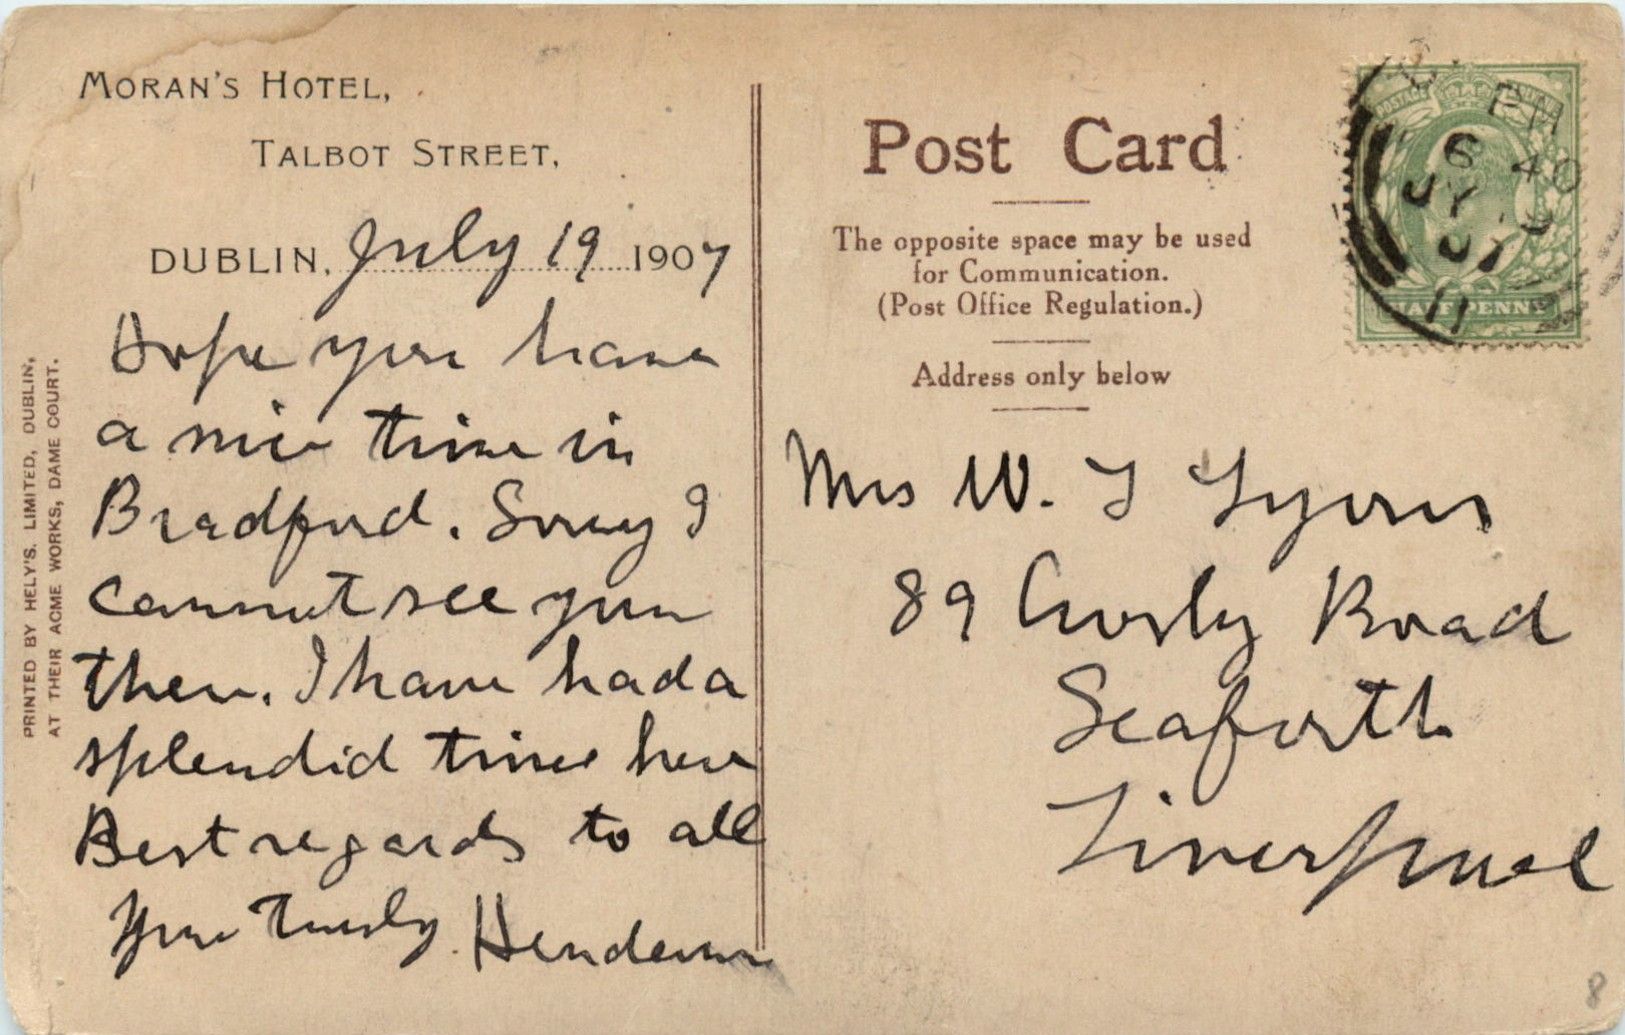 MORAN'S HOTEL,
TALBOT STREET,
DUBLIN, July 19 1907
Hope you have
a nice time in
Bradford. Sorry I
cannot see you
then. I have had a
splendid time here
Best regards to all
Yours truly Henderson
PRINTED BY HELY'S, LIMITED, DUBLIN,
AT THEIR ACME WORKS, DAME COURT.
Post Card
The opposite space may be used
for Communication.
(Post Office Regulation.)
Address only below
Mrs W. J Lyons
89 Crosby Road
Seaforth
Liverpool
POSTAGE
HALF PENNY
PM
6 40
JY 19
07
11
8